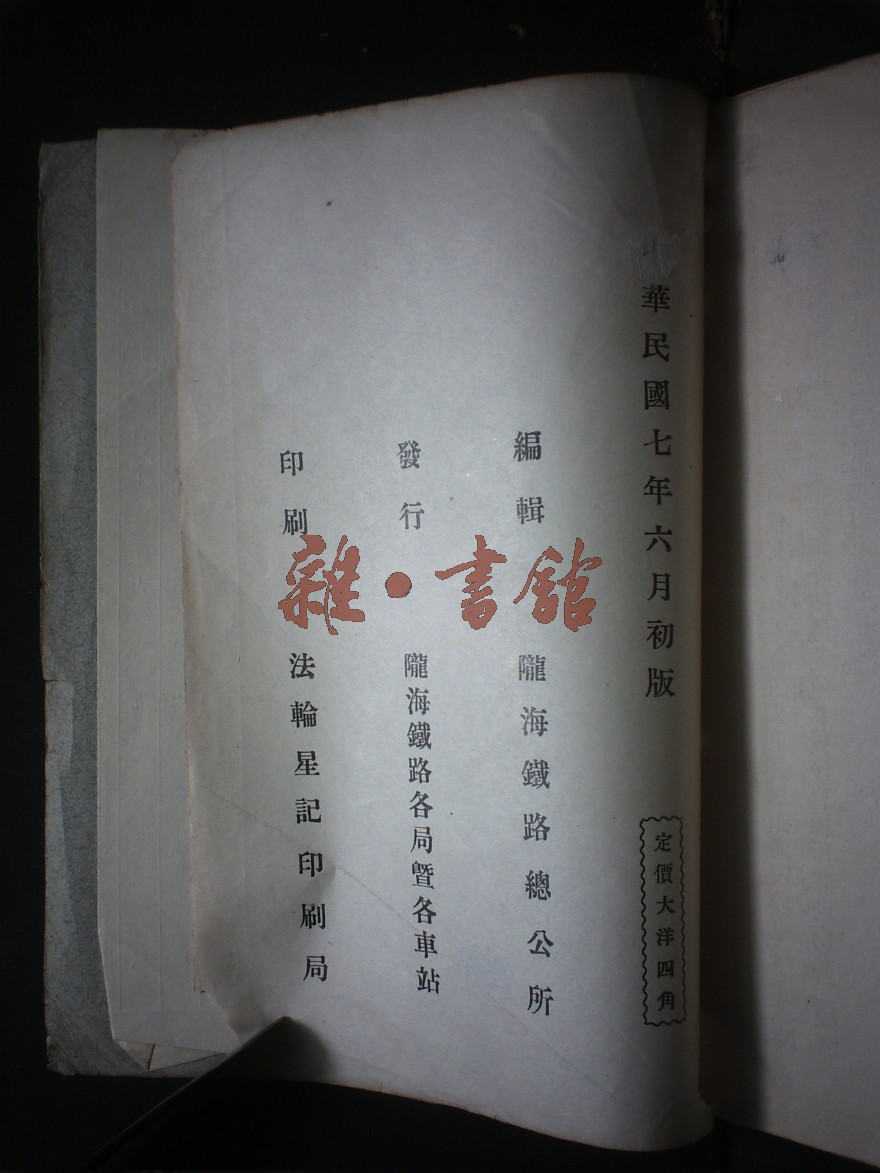 華民國七年六月初版
定價大洋四角
編輯 隴海鐵路總公所
發行 隴海鐵路各局暨各車站
印刷 法輪星記印刷局
雜·書館